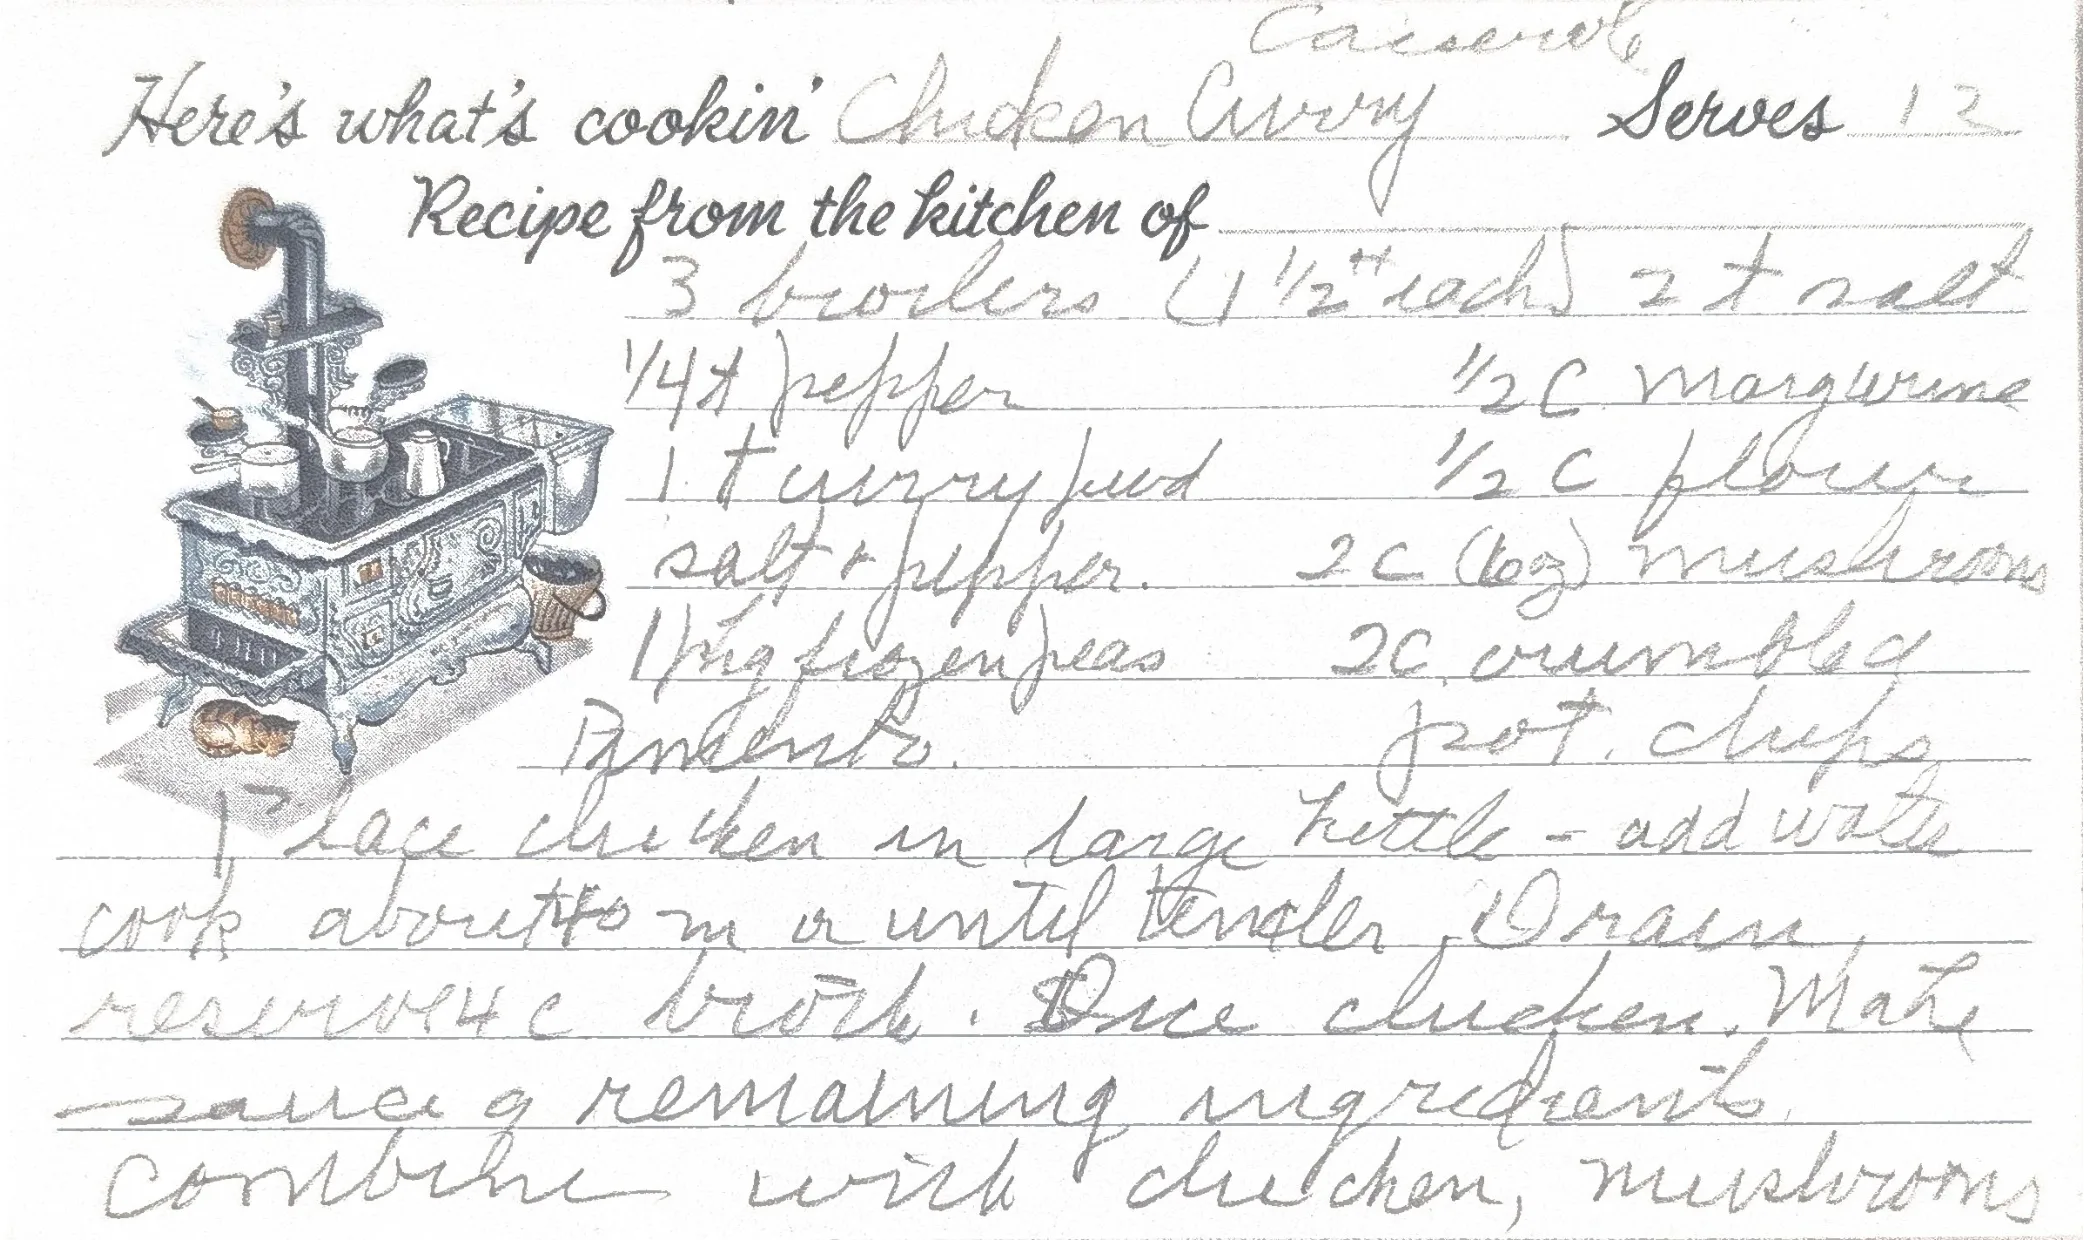 Casserole
Here's what's cookin' Chicken Curry Serves 12
Recipe from the kitchen of
3 broilers (1 1/2# each) 2 t salt
1/4 t pepper 1/2 C margurine
1 t curry pwd 1/2 C flour
salt + pepper. 2 C (6oz) mushrooms
1 pkg frozen peas 2C crumbled
Pimiento. pot. chips
Place chicken in large kettle - add water
cook about 40 m or until tender. Drain,
reserve 4 c broth. Dice chicken. Make
sauce of remaining ingredients.
combine with chicken, mushrooms